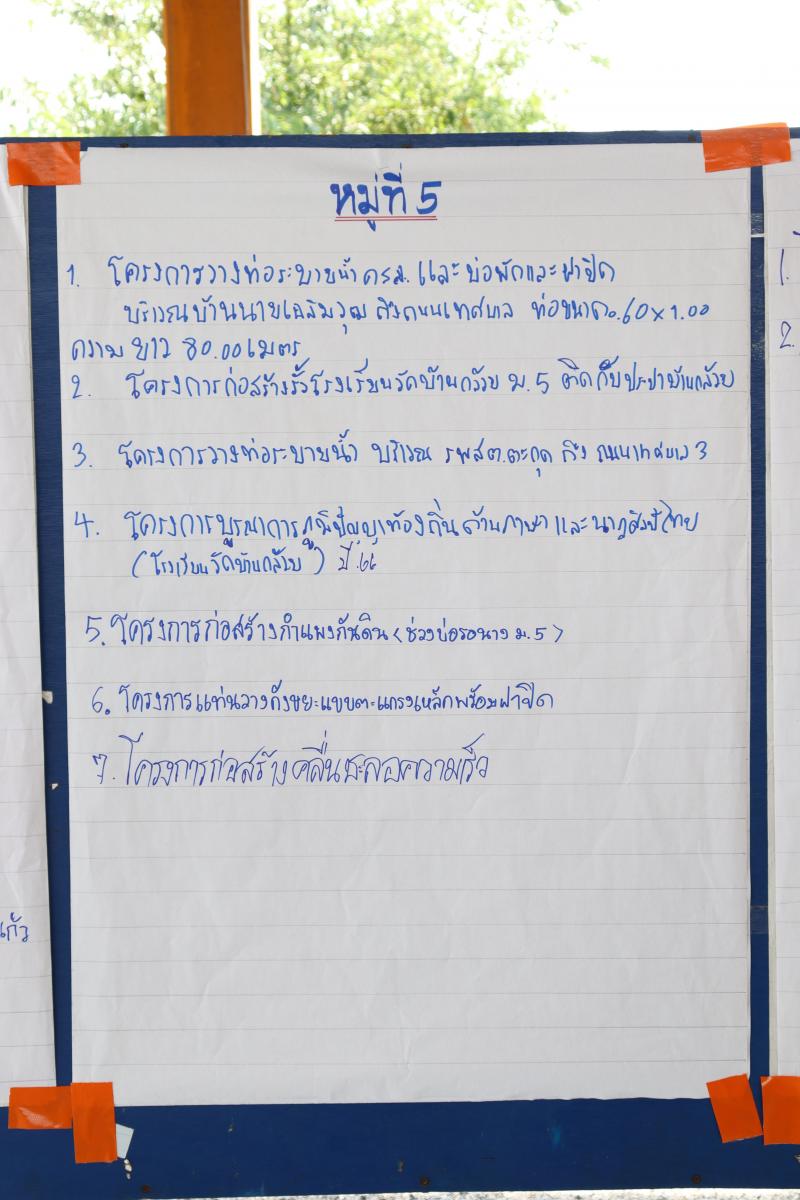 หมู่ที่ 5
1. โครงการวางท่อระบายน้ำ คสล. และบ่อพักและฝาปิด
บริเวณบ้านนายเฉลิมวุฒ ถึงถนนเทศบาล ท่อขนาด 0.60 x 1.00
ความยาว 80.00 เมตร
2. โครงการก่อสร้างรั้วโรงเรียนวัดบ้านกล้วย ม.5 ติดกับประปาบ้านกล้วย
3. โครงการวางท่อระบายน้ำ บริเวณ รพสต.ตะกุด ถึง ถนนเทศบาล 3
4. โครงการบูรณาการภูมิปัญญาท้องถิ่นด้านภาษา และนาฏศิลป์ไทย
(โรงเรียนวัดบ้านกล้วย) ปี 66
5. โครงการก่อสร้างกำแพงกันดิน <ช่วงบ่อรอนาง ม.5>
6. โครงการแท่นวางถังขยะแบบตะแกรงเหล็กพร้อมฝาปิด
7. โครงการก่อสร้างคลื่นชะลอความเร็ว
แก้ว
1.
2.